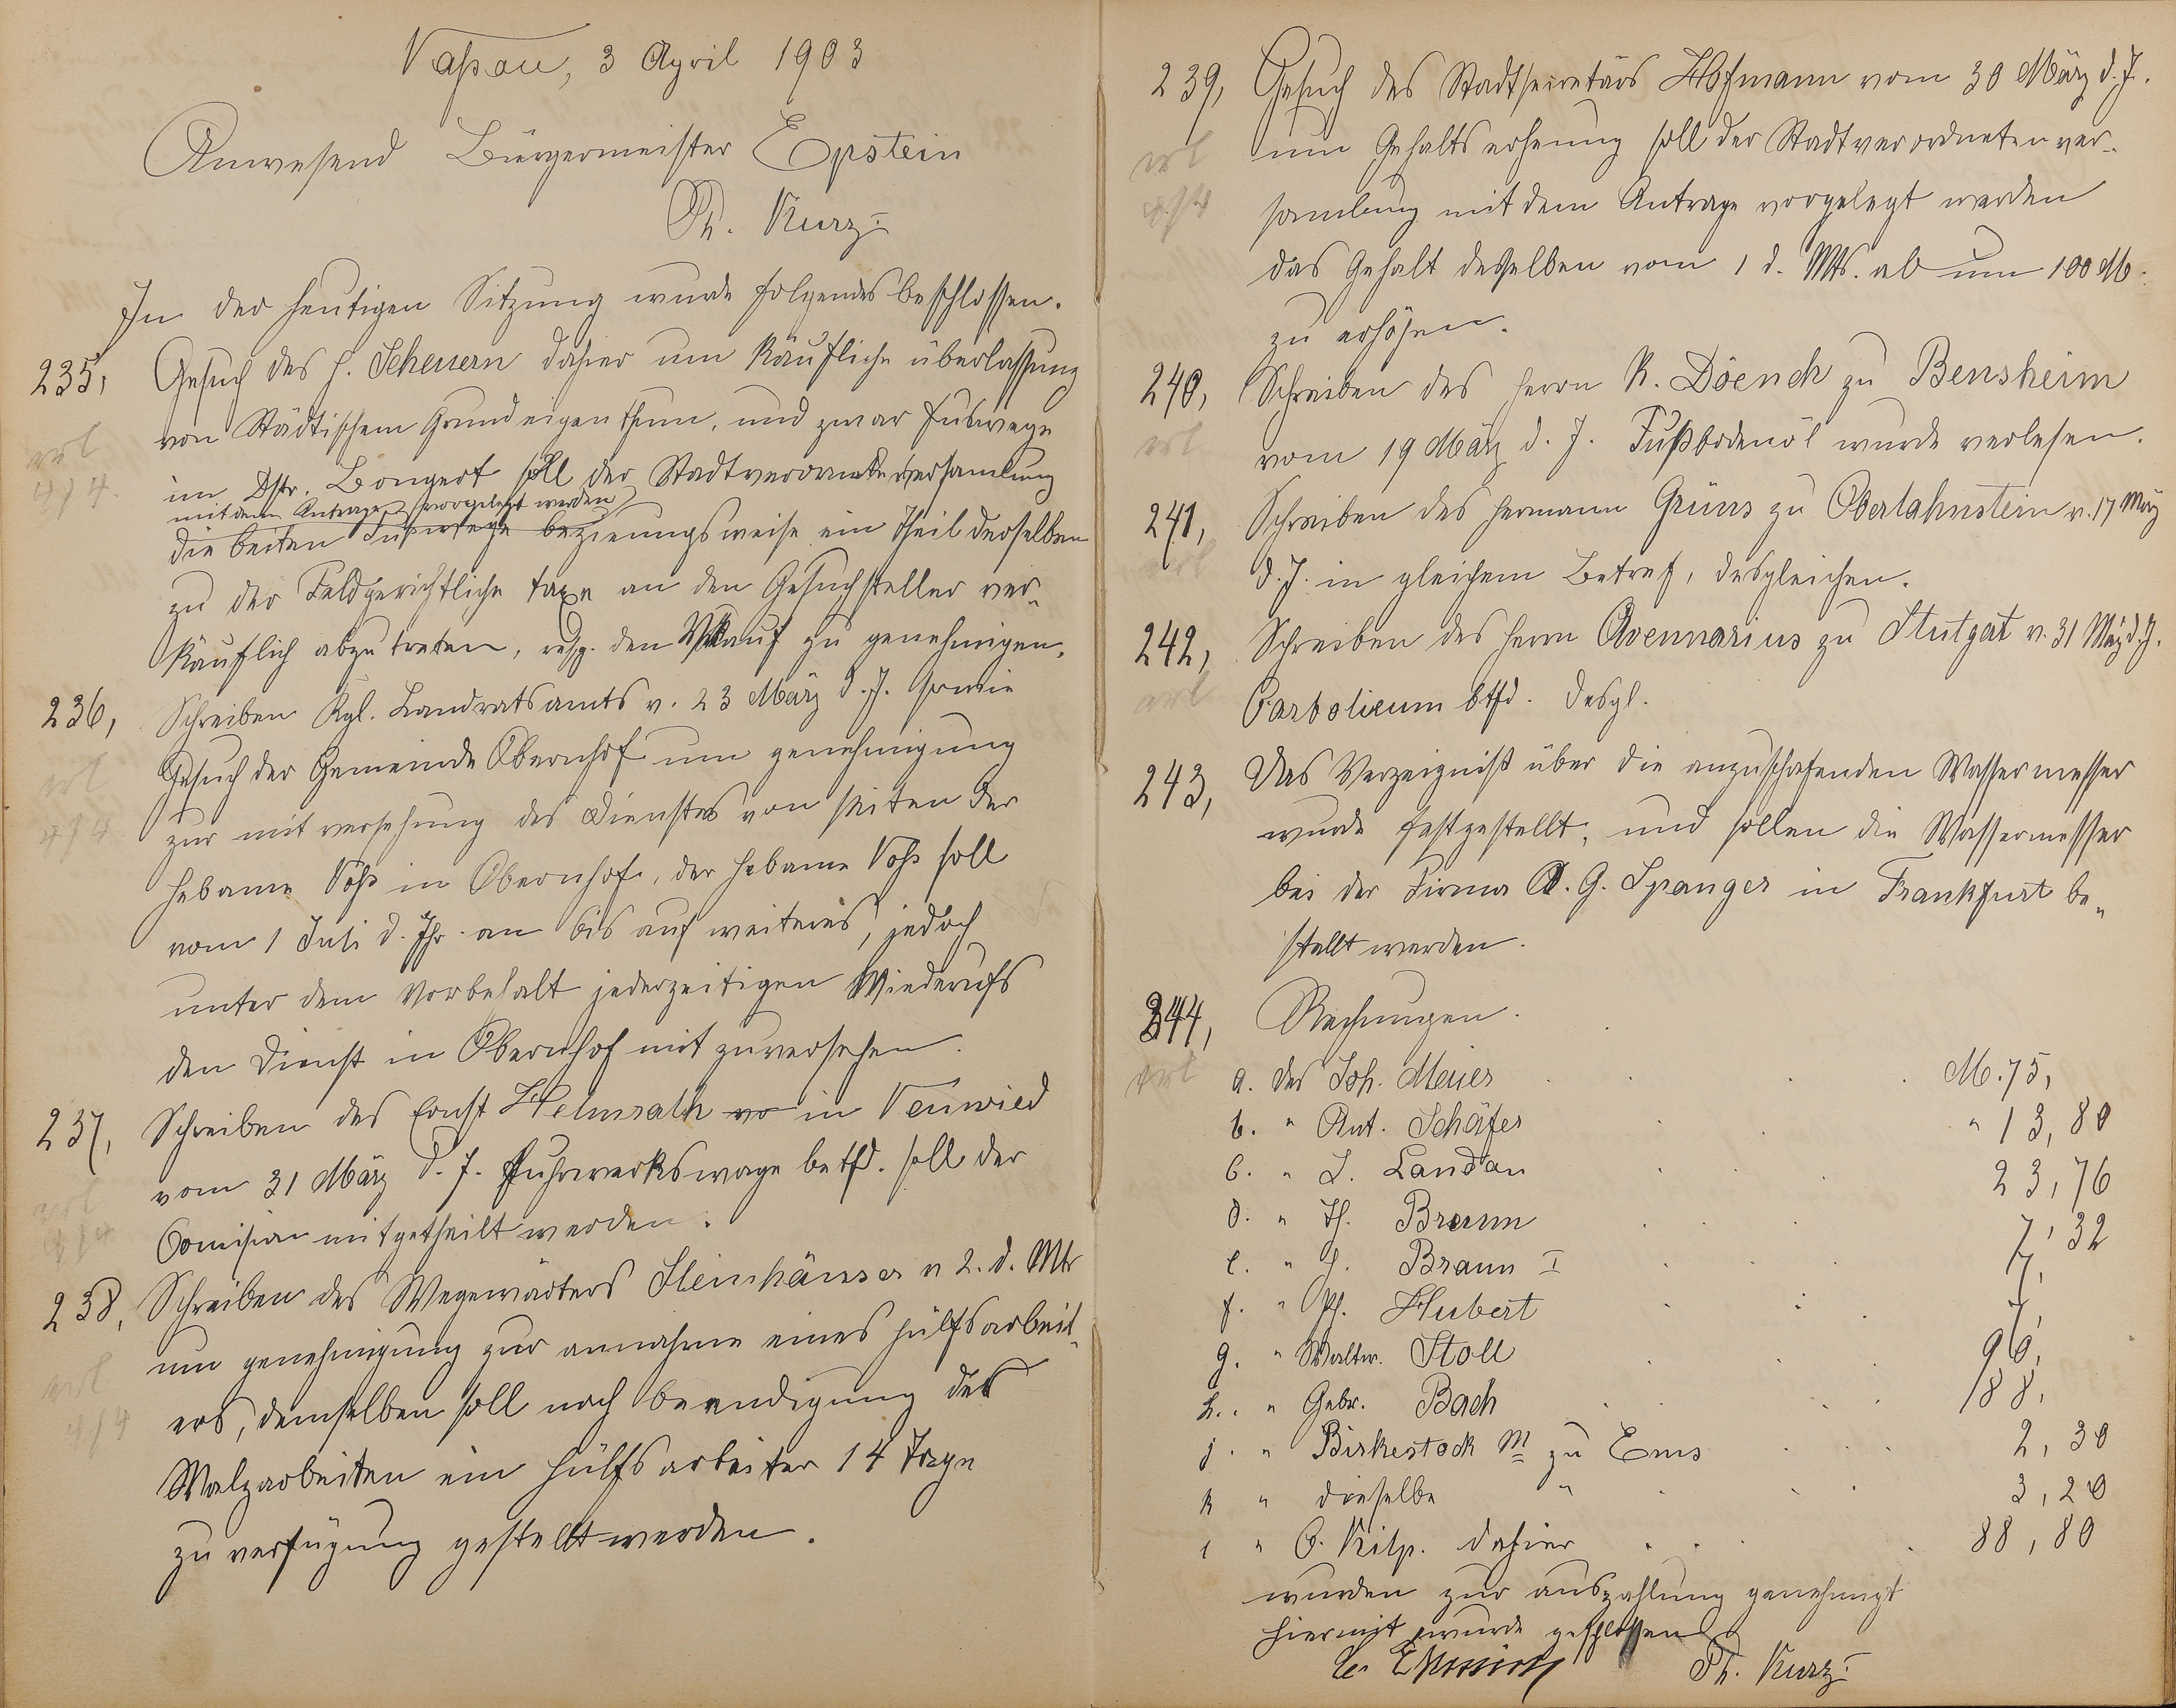 Naßau, 3 April 1903
Anwesend Bürgermeister Epstein
Ph. Kurz
In der heutigen Sitzung wurde folgendes beschlossen.
235, Gesuch des H. Scheuern dahier um käufliche überlassung
von Städtischem Grundeigenthum, und zwar Fuswege
im Dstr. Bongert soll der Stadtverordnetenversamlung
mit dem Antrage vorgelegt werden
die beiden Fuswege bezieungsweise ein Theil derselben
zu der Feldgerichtliche taxe an den Gesuchsteller ver-
käuflich abzutreten, resp. den Verkauf zu genehmigen.
erl
4/4.
236, Schreiben Kgl. Landratsamts v. 23 März d. J. sowie
Gesuch der Gemeinde Obernhof um genehmigung
zur mit versehung des Dienstes von seiten der
Hebame Voß in Obernhof, der Hebame Voß soll
vom 1 Juli d. Jhr. an bis auf weiteres, jedoch
unter dem Vorbehalt jederzeitigen Wiederufs
den Dienst in Obernhof mit zuversehen.
erl
4/4
237, Schreiben des Ernst Helmrath in Neuwied
vom 31 März d. J. Fuhrwerkswage betfd. soll der
Comision mitgetheilt werden.
erl
4/4
238, Schreiben des Wegewärters Steinhäuser v 2. d. Mts
um genehmigung zur annahme eines hülfsarbeit-
ers, demselben soll nach beendigung der
Walzarbeiten ein hülfsarbeiter 14 Tage
zu verfügung gestellt werden.
erl
4/4
239, Gesuch des Stadtsecretärs Hofmann vom 30 März d. J.
um Gehaltserhenung soll der Stadtverordnetenver-
samlung mit dem Antrage vorgelegt werden
das Gehalt desselben vom 1 d. Mts. ab um 100 M.
zu erhöhen.
erl
240, Schreiben des Herrn K. Döench zu Bensheim
vom 19 März d. J. Fußbodenöl wurde verlesen.
erl
241, Schreiben des Hermann Grüns zu Oberlahnstein v. 17 März
d. J. in gleichem Betref, desgleichen.
erl
242, Schreiben des Herrn Avennarius zu Stutgat v. 31 März d. J.
Carbolieum btfd. desgl.
erl
243, Das Verzeigniß über die anzuschafenden Wassermesser
wurde festgestellt, und sollen die Wassermesser
bei der Firma A. G. Spanger in Frankfurt be-
stellt werden.
244, Rechnungen.
erl
a. des Joh. Meier . . . . M. 75,
b. " Ant. Schäfer . . " 13,80
c. " L. Landau . . . 23,76
d. " Th. Bramm . . . 7,32
e. " H. Braun I . . . 7,
f. " Ph. Hubert . . . 7,
g. " Walter. Stoll . . . 96,
h. " Gebr. Bach . . . 188,
j. " Birkestock M zu Ems . . . 2,30
k " dieselbe " . . . 3,20
l " C. Kilp. dahier . . . 88,80
wurden zur auszahlung genehmigt
hiermit wurde geschlossen
Ph. Kurz